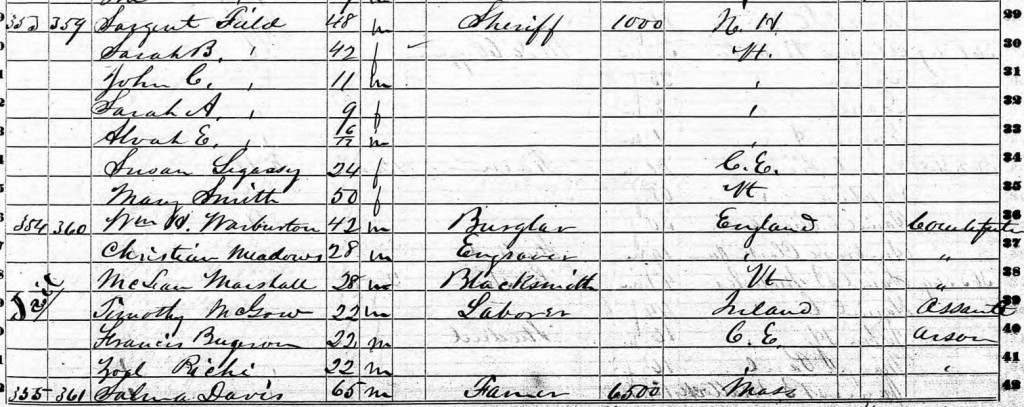 353 359 Sargent Field 48 m Sheriff 1000 N. H. 29
Sarah B. " 42 f Vt. 30
John C. " 11 m " 31
Sarah A. " 9 f " 32
Alvah E. " 6/12 m " 33
Susan Segassy 24 f C. E. 34
Mary Smith 50 f Vt 35
354 360 Wm H. Warburton 42 m Burglar England 36
Christian Meadows 28 m Engraver " " 37
McLean Marshall 28 m Blacksmith Vt " 38
Jail Timothy McGow 22 m Laborer Ireland Assault 39
Francis 22 m C. E. Arson 40
Richi 22 m " 41
355 361 Davis 65 m Farmer 6500 Mass 42